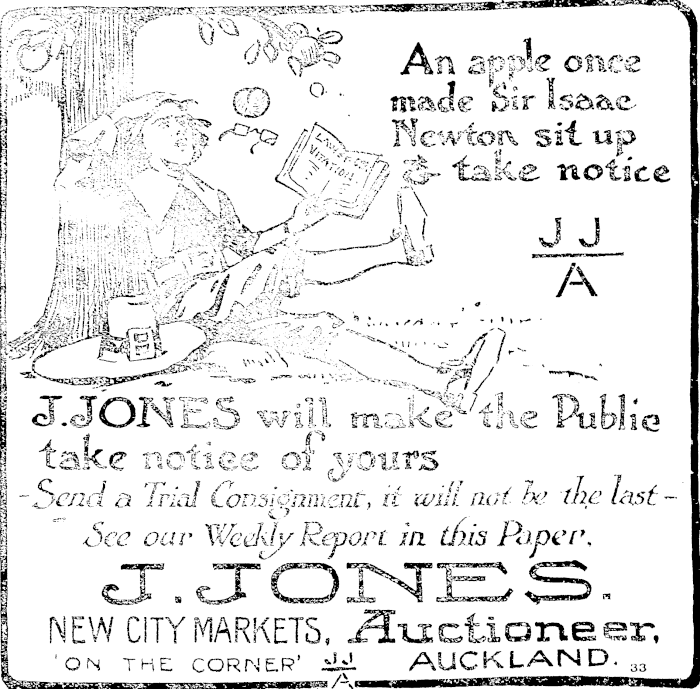 An apple once
made Sir Isaac
Newton sit up
& take notice
LAWS OF
VITATION
J J
A
J. JONES will make the Public
take notice of yours
- Send a Trial Consignment, it will not be the last -
See our Weekly Report in this Paper.
J. JONES.
NEW CITY MARKETS, Auctioneer,
'ON THE CORNER' JJ AUCKLAND. 33
A